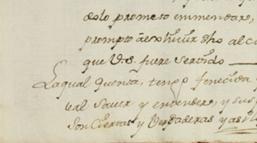 dolo prometo emmendare,
prompto â exhiuir dho al c
que Vd. fuere seruido
La qual quenta, tengo fenecida y
leal Sauer y entender, y sus p
Son Ciertas y Verdaderas y as